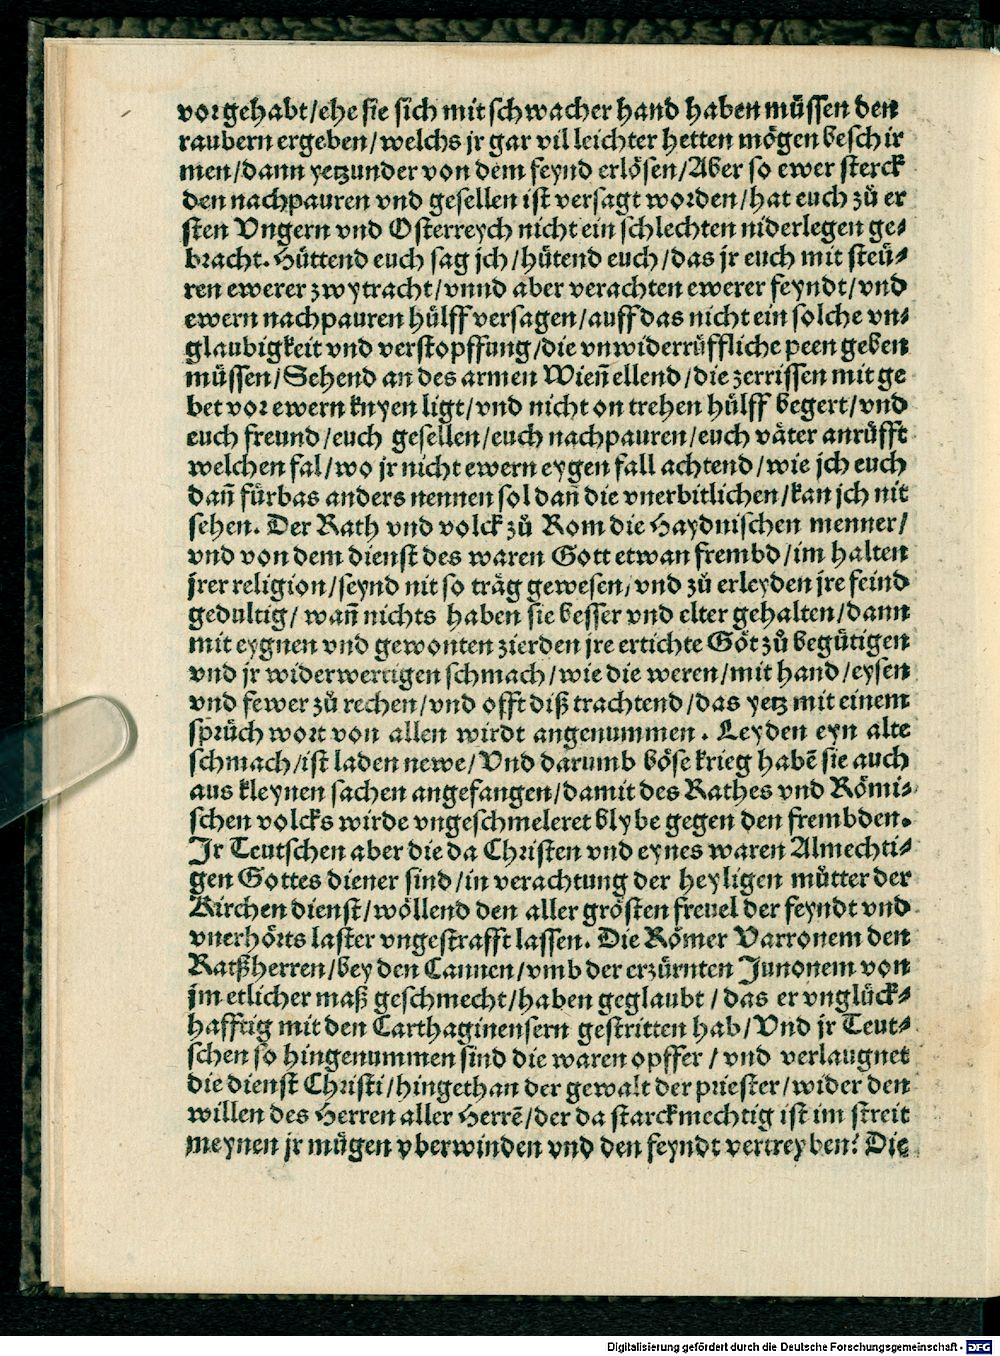 vor gehabt/ehe sie sich mit schwacher hand haben müssen den
raubern ergeben/welchs jr gar vil leichter hetten mögen beschir
men/dann yetzunder von dem feynd erlösen/Aber so ewer sterck
den nachpauren vnd gesellen ist versagt worden/hat euch zů er
sten Vngern vnd Osterreych nicht ein schlechten niderlegen ge-
bracht. Hüttend euch sag jch/hütend euch/das jr euch mit steü-
ren ewerer zwytracht/vnnd aber verachten ewerer feyndt/vnd
ewern nachpauren hülff versagen/auff das nicht ein solche vn-
glaubigkeit vnd verstopffung/die vnwiderrüffliche peen geben
müssen/Sehend an des armen Wieñ ellend/die zerrissen mit ge
bet vor ewern knyen ligt/vnd nicht on trehen hülff begert/vnd
euch freund/euch gesellen/euch nachpauren/euch väter anrüfft
welchen fal/wo jr nicht ewern eygen fall achtend/wie jch euch
dañ fürbas anders nennen sol dañ die vnerbitlichen/kan jch nit
sehen. Der Rath vnd volck zů Rom die Haydnischen menner/
vnd von dem dienst des waren Gott etwan frembd/im halten
jrer religion/seynd nit so träg gewesen/vnd zů erleyden jre feind
gedultig/wañ nichts haben sie besser vnd elter gehalten/dann
mit eygnen vnd gewonten zierden jre ertichte Göt zů begütigen
vnd jr widerwertigen schmach/wie die weren/mit hand/eysen
vnd fewer zů rechen/vnd offt diß trachtend/das yetz mit einem
sprüch wort von allen wirdt angenummen. Leyden eyn alte
schmach/ist laden newe/Vnd darumb böse krieg habẽ sie auch
aus kleynen sachen angefangen/damit des Rathes vnd Römi-
schen volcks wirde vngeschmeleret blybe gegen den frembden.
Jr Teutschen aber die da Christen vnd eynes waren Almechti-
gen Gottes diener sind/in verachtung der heyligen můtter der
Kirchen dienst/wöllend den aller grösten freuel der feyndt vnd
vnerhörts laster vngestrafft lassen. Die Römer Varronem den
Ratßherren/bey den Cannen/vmb der erzürnten Junonem von
jm etlicher maß geschmecht/haben geglaubt/das er vnglück-
hafftig mit den Carthaginensern gestritten hab/Vnd jr Teut-
schen so hingenummen sind die waren opffer/vnd verlaugnet
die dienst Christi/hingethan der gewalt der priester/wider den
willen des Herren aller Herrẽ/der da starckmechtig ist im streit
meynen jr mügen vberwinden vnd den feyndt vertreyben? Die
Digitalisierung gefördert durch die Deutsche Forschungsgemeinschaft - DFG